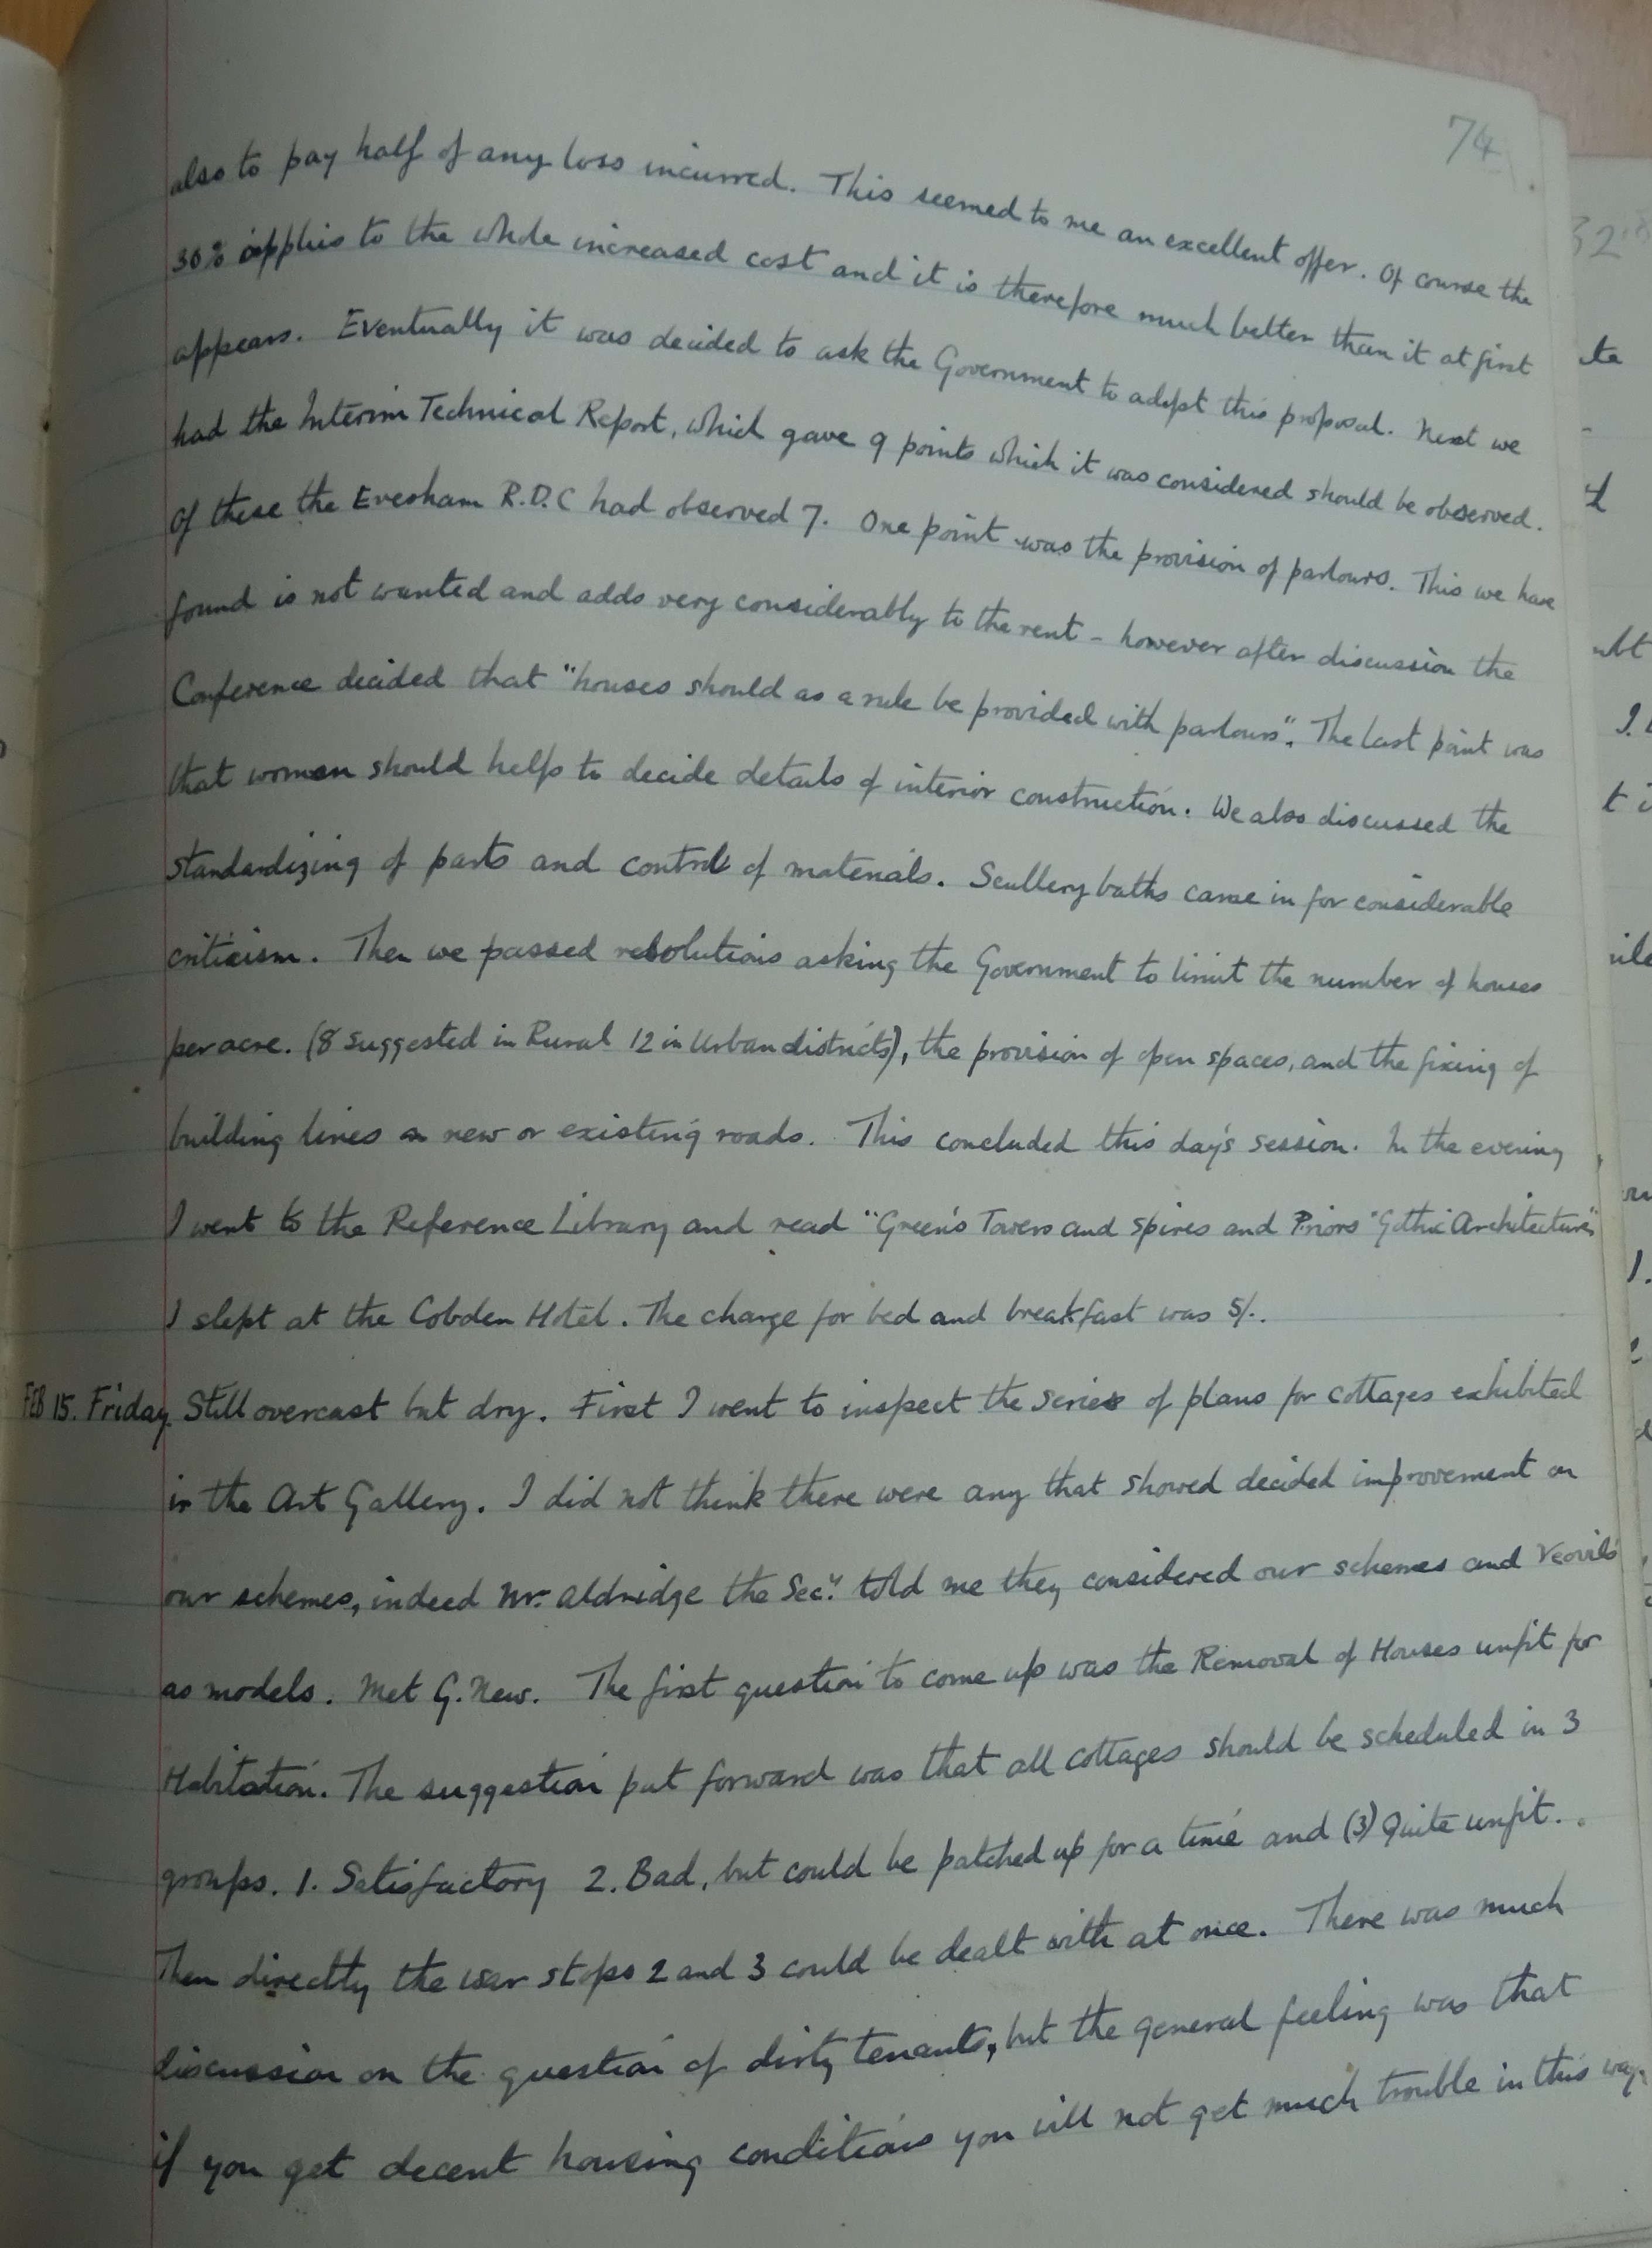 74
also to pay half of any loss incurred. This seemed to me an excellent offer. Of course the
30% applies to the whole increased cost and it is therefore much better than it at first
appears. Eventually it was decided to ask the Government to adopt this proposal. Next we
had the Interim Technical Report, which gave 9 points which it was considered should be observed.
Of these the Evesham R.D.C had observed 7. One point was the provision of parlours. This we have
found is not wanted and adds very considerably to the rent - however after discussion the
Conference decided that "houses should as a rule be provided with parlours". The last point was
that women should help to decide details of interior construction. We also discussed the
standardizing of parts and control of materials. Scullery baths came in for considerable
criticism. Then we passed resolutions asking the Government to limit the number of houses
per acre. (8 suggested in Rural 12 in Urban districts), the provision of open spaces, and the fixing of
building lines on new or existing roads. This concluded this day's session. In the evening
I went to the Reference Library and read "Green's Towers and Spires and Priors "Gothic Architecture"
I slept at the Cobden Hotel. The charge for bed and breakfast was 5/.
FEB 15. Friday. Still overcast but dry. First I went to inspect the series of plans for cottages exhibited
in the Art Gallery. I did not think there were any that showed decided improvement on
our schemes, indeed Mr. Aldridge the Secy. told me they considered our schemes and Yeovils
as models. Met G. New. The first question to come up was the Removal of Houses unfit for
Habitation. The suggestion put forward was that all cottages should be scheduled in 3
groups. 1. Satisfactory 2. Bad, but could be patched up for a time and (3) Quite unfit.
Then directly the war stops 2 and 3 could be dealt with at once. There was much
discussion on the question of dirty tenants, but the general feeling was that
if you get decent housing conditions you will not get much trouble in this way.